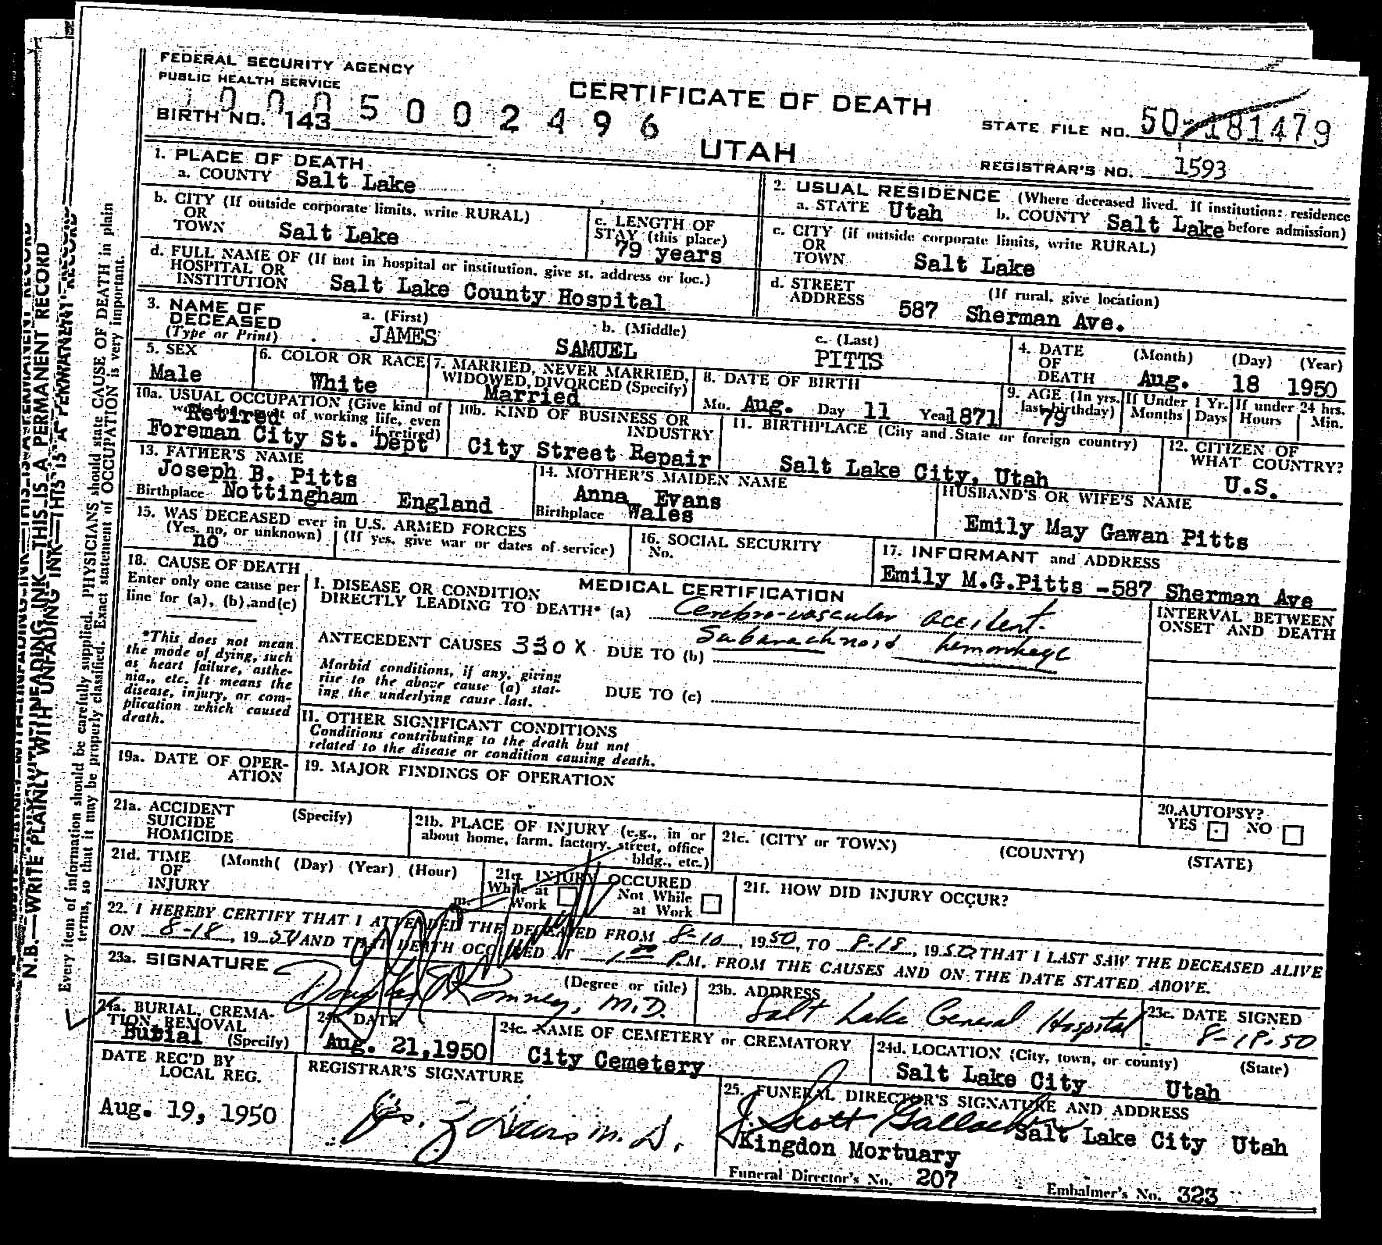 FEDERAL SECURITY AGENCY
PUBLIC HEALTH SERVICE
CERTIFICATE OF DEATH
UTAH
10005002496
BIRTH NO. 143
STATE FILE NO. 50-181479
REGISTRAR'S NO. 1593
1. PLACE OF DEATH
a. COUNTY Salt Lake
b. CITY (If outside corporate limits, write RURAL)
OR
TOWN Salt Lake
c. LENGTH OF
STAY (this place)
79 years
d. FULL NAME OF (If not in hospital or institution, give st. address or loc.)
HOSPITAL OR
INSTITUTION Salt Lake County Hospital
2. USUAL RESIDENCE (Where deceased lived. If institution: residence
a. STATE Utah b. COUNTY Salt Lake before admission)
c. CITY (if outside corporate limits, write RURAL)
OR
TOWN Salt Lake
d. STREET (If rural, give location)
ADDRESS 587 Sherman Ave.
3. NAME OF
DECEASED
(Type or Print)
a. (First)
JAMES
b. (Middle)
SAMUEL
c. (Last)
PITTS
4. DATE (Month) (Day) (Year)
OF
DEATH Aug. 18 1950
5. SEX
Male
6. COLOR OR RACE
White
7. MARRIED, NEVER MARRIED,
WIDOWED, DIVORCED (Specify)
Married
8. DATE OF BIRTH
Mo. Aug. Day 11 Year 1871
9. AGE (In yrs.
last birthday)
79
If Under 1 Yr.
Months Days
If under 24 hrs.
Hours Min.
10a. USUAL OCCUPATION (Give kind of
work done most of working life, even
if retired)
Retired
Foreman City St. Dept
10b. KIND OF BUSINESS OR
INDUSTRY
City Street Repair
11. BIRTHPLACE (City and State or foreign country)
Salt Lake City, Utah
12. CITIZEN OF
WHAT COUNTRY?
U.S.
13. FATHER'S NAME
Joseph B. Pitts
Birthplace Nottingham England
14. MOTHER'S MAIDEN NAME
Anna Evans
Birthplace Wales
HUSBAND'S OR WIFE'S NAME
Emily May Gawan Pitts
15. WAS DECEASED ever in U.S. ARMED FORCES
(Yes, no, or unknown) (If yes, give war or dates of service)
no
16. SOCIAL SECURITY
No.
17. INFORMANT and ADDRESS
Emily M.G.Pitts -587 Sherman Ave
18. CAUSE OF DEATH
Enter only one cause per
line for (a), (b) and (c)
*This does not mean
the mode of dying, such
as heart failure, asthe-
nia, etc. It means the
disease, injury, or com-
plication which caused
death.
MEDICAL CERTIFICATION
I. DISEASE OR CONDITION
DIRECTLY LEADING TO DEATH* (a) Cerebro-vascular accident.
ANTECEDENT CAUSES 330X DUE TO (b) Subarachnoid hemorrhage
Morbid conditions, if any, giving
rise to the above cause (a) stat-
ing the underlying cause last.
DUE TO (c)
II. OTHER SIGNIFICANT CONDITIONS
Conditions contributing to the death but not
related to the disease or condition causing death.
INTERVAL BETWEEN
ONSET AND DEATH
19a. DATE OF OPER-
ATION
19. MAJOR FINDINGS OF OPERATION
20. AUTOPSY?
YES NO
21a. ACCIDENT (Specify)
SUICIDE
HOMICIDE
21b. PLACE OF INJURY (e.g., in or
about home, farm, factory, street, office
bldg., etc.)
21c. (CITY or TOWN) (COUNTY) (STATE)
21d. TIME (Month( (Day) (Year) (Hour)
OF
INJURY m.
21e. INJURY OCCURED
While at Work
Not While at Work
21f. HOW DID INJURY OCCUR?
22. I HEREBY CERTIFY THAT I ATTENDED THE DECEASED FROM 8-10, 1950, TO 8-18, 1950 THAT I LAST SAW THE DECEASED ALIVE
ON 8-18, 1950 AND THAT DEATH OCCURRED AT 1:00 P.M. FROM THE CAUSES AND ON THE DATE STATED ABOVE.
23a. SIGNATURE (Degree or title)
Douglas Romney, M.D.
23b. ADDRESS
Salt Lake General Hospital
23c. DATE SIGNED
8-18-50
24a. BURIAL, CREMA-
TION, REMOVAL
Burial (Specify)
24b. DATE
Aug. 21,1950
24c. NAME OF CEMETERY or CREMATORY
City Cemetery
24d. LOCATION (City, town, or county) (State)
Salt Lake City Utah
DATE REC'D BY
LOCAL REG.
Aug. 19, 1950
REGISTRAR'S SIGNATURE
M.D.
25. FUNERAL DIRECTOR'S SIGNATURE AND ADDRESS
J. Scott
Salt Lake City Utah
Kingdon Mortuary
Funeral Director's No. 207
Embalmer's No. 323
N.B.—WRITE PLAINLY WITH UNFADING INK—THIS IS A PERMANENT RECORD
Every item of information should be carefully supplied. PHYSICIANS should state CAUSE OF DEATH in plain
terms, so that it may be properly classified. Exact statement of OCCUPATION is very important.